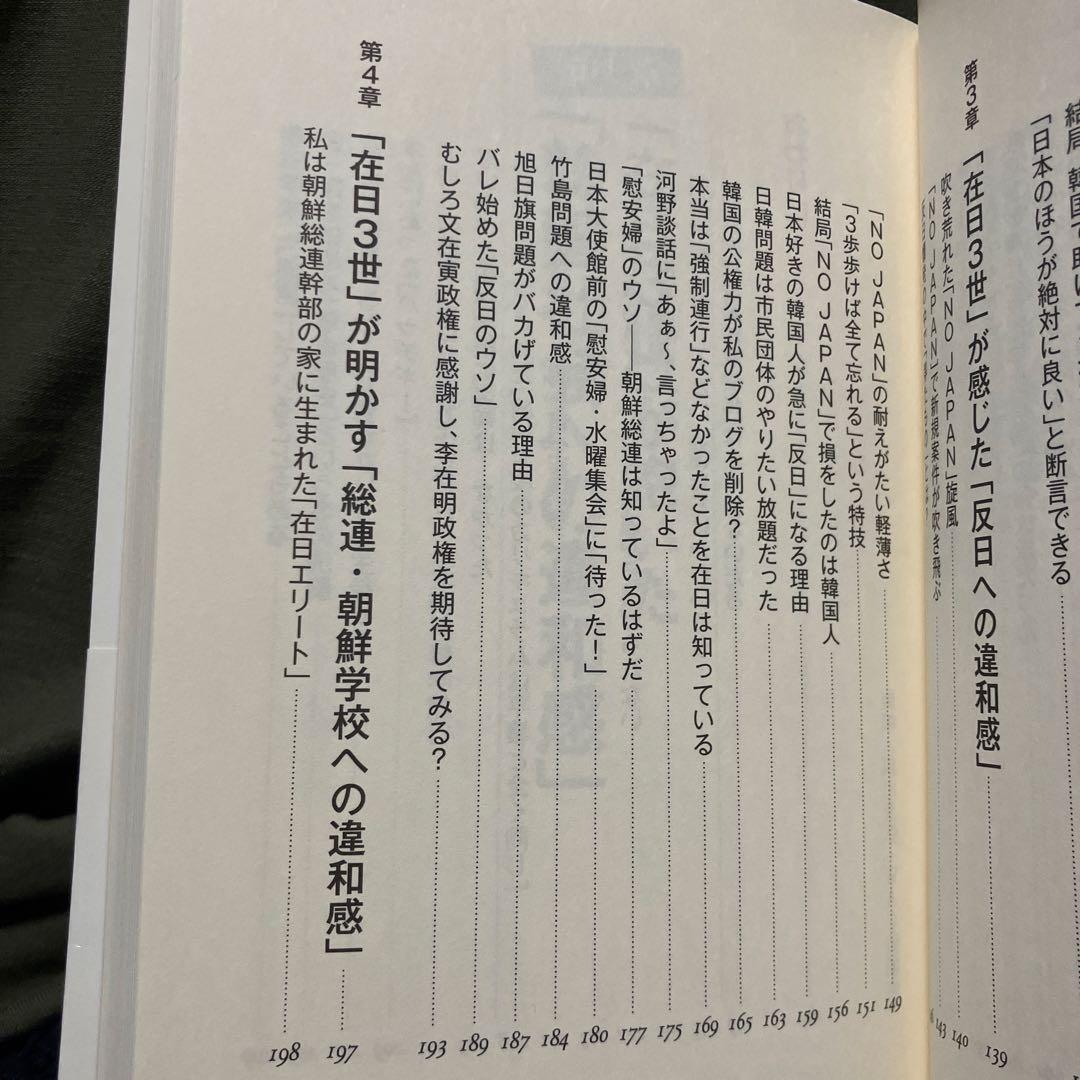 「日本のほうが絶対に良い」と断言できる
第3章 「在日3世」が感じた「反日への違和感」 139
吹き荒れた「NO JAPAN」旋風 140
「NO JAPAN」で新規案件が吹き飛ぶ 143
「NO JAPAN」の耐えがたい軽薄さ 149
「3歩歩けば全て忘れる」という特技 151
結局「NO JAPAN」で損をしたのは韓国人 156
日本好きの韓国人が急に「反日」になる理由 159
日韓問題は市民団体のやりたい放題だった 163
韓国の公権力が私のブログを削除? 165
本当は「強制連行」などなかったことを在日は知っている 169
河野談話に「あぁ〜、言っちゃったよ」 175
「慰安婦」のウソ――朝鮮総連は知っているはずだ 177
日本大使館前の「慰安婦・水曜集会」に「待った!」 180
竹島問題への違和感 184
旭日旗問題がバカげている理由 187
バレ始めた「反日のウソ」 189
むしろ文在寅政権に感謝し、李在明政権を期待してみる? 193
第4章 「在日3世」が明かす「総連・朝鮮学校への違和感」 197
私は朝鮮総連幹部の家に生まれた「在日エリート」 198